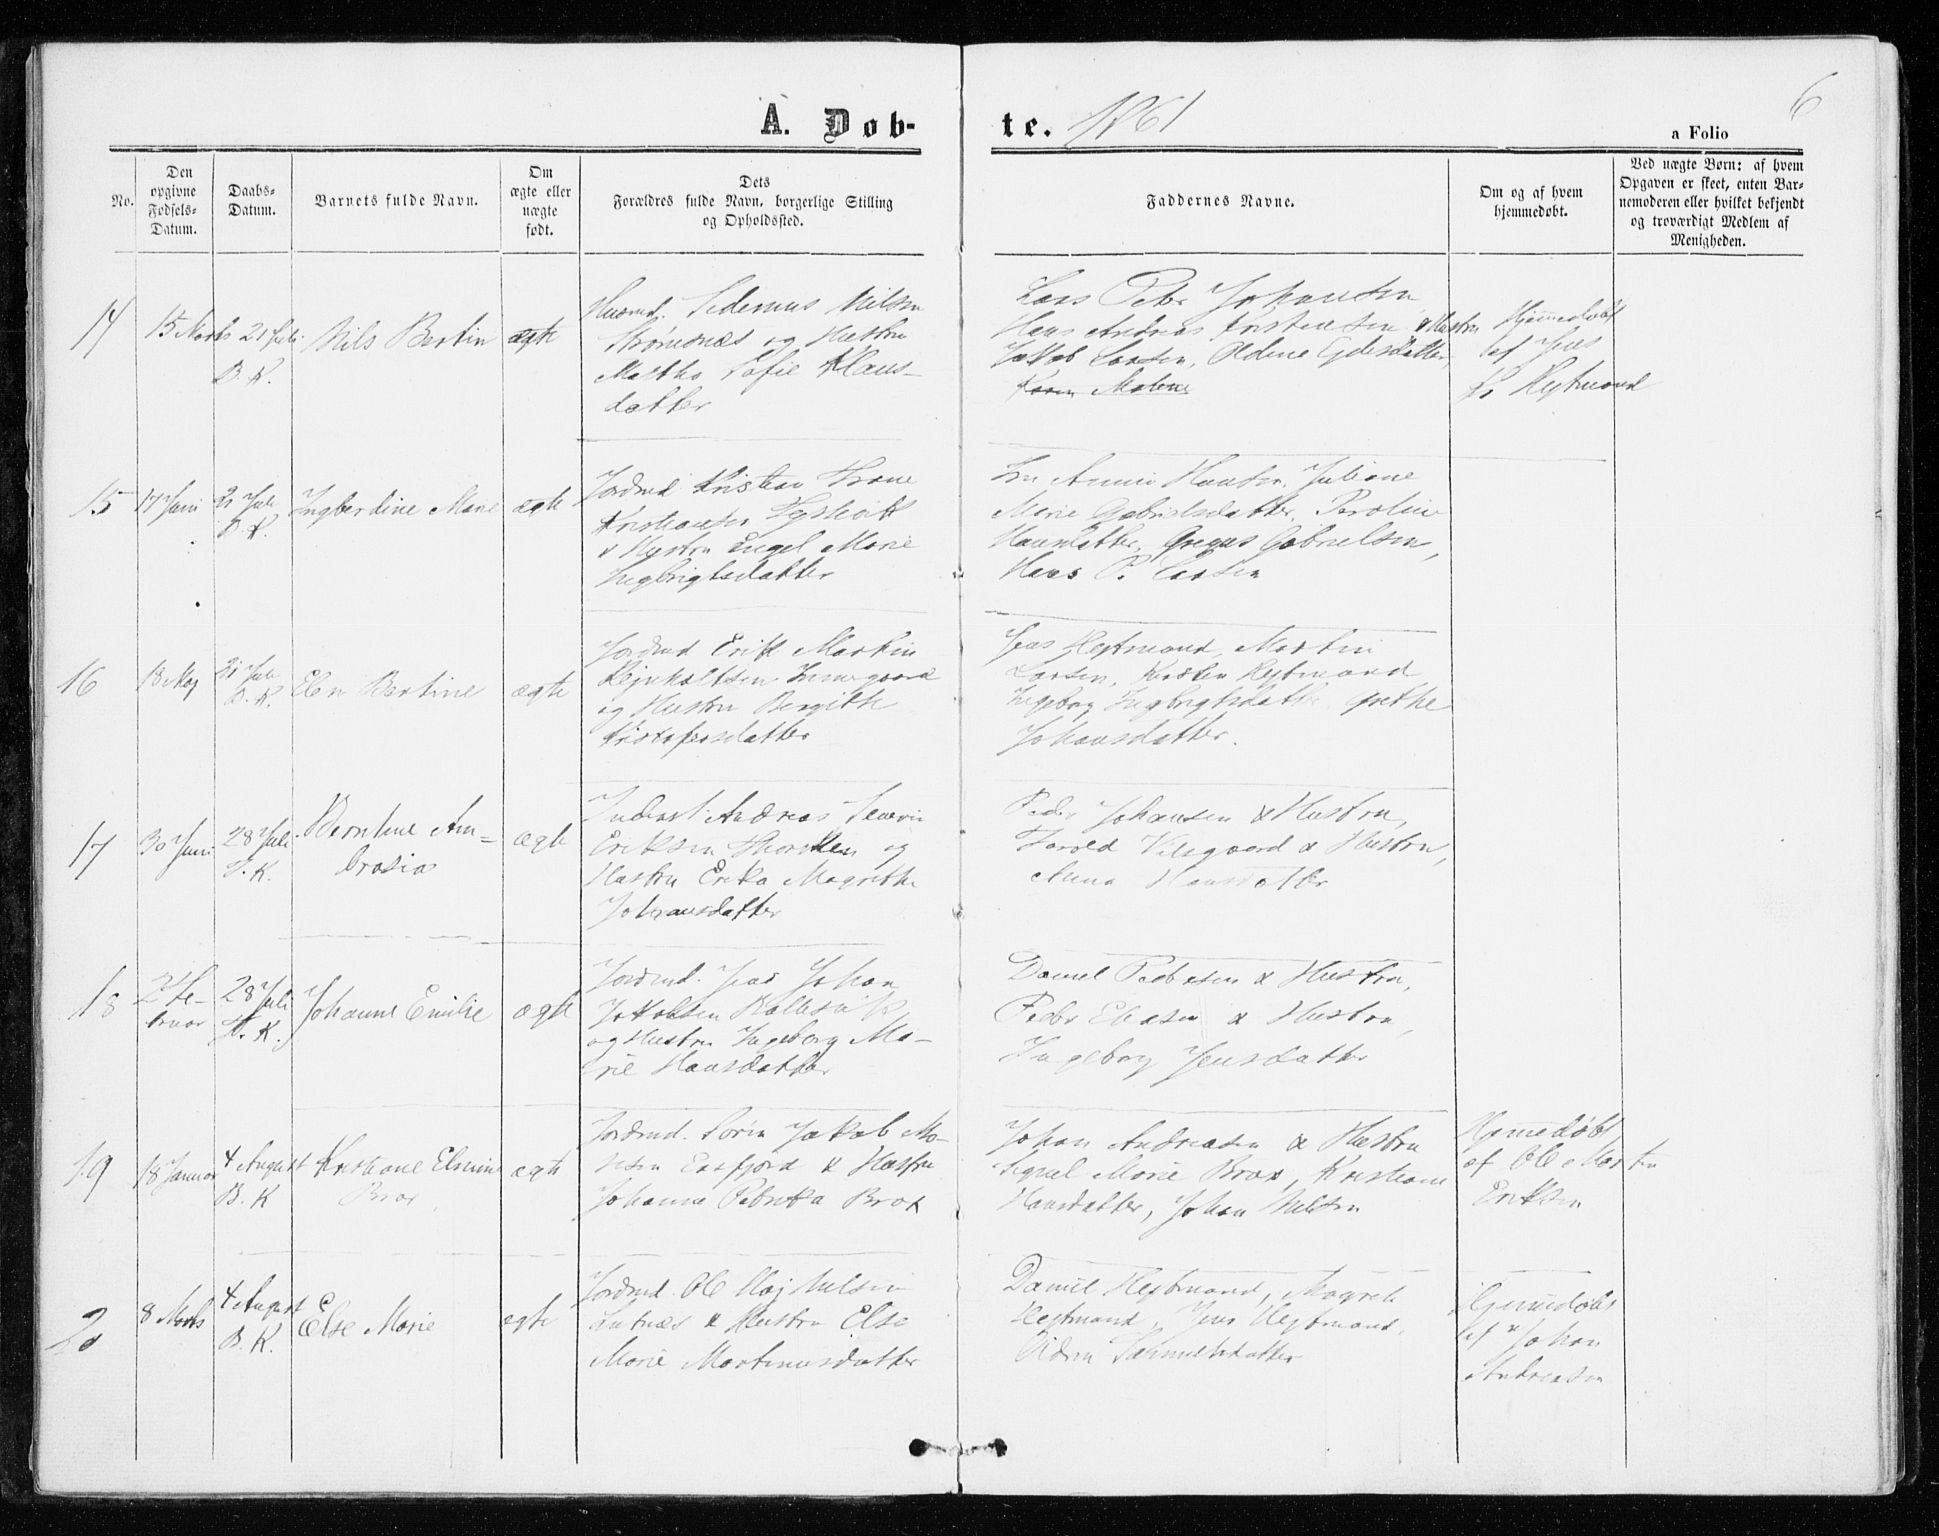 A. Døb-
te. 1861
6
a Folio
No.
Den
opgivne
Fødsels-
Datum.
Daabs-
Datum.
Barnets fulde Navn.
Om
ægte eller
uægte
født.
Dets
Forældres fulde Navn, borgerlige Stilling
og Opholdssted.
Faddernes Navne.
Om og af hvem
hjemmedøbt.
Ved uægte Børn: af hvem
Opgaven er skeet, enten Bar-
nemoderen eller hvilket bekjendt
og troværdigt Medlem af
Menigheden.
14
15 Marts
21 Juli
B. K.
Nils Bertin
ægte
Huusmd. Nilsen
Strømsnæs og Hustru
Martha Sofie Klaus-
datter
Lars Peder Johansen
Hans Andreas Kristensen & Hustru
Jakob Larsen, Oldine
Karen Malene
Hjemmedøbt
af Jens
Hejtmand
15
17 Juni
21 Juli
B. K.
Ingberdine Marie
ægte
Jordmd. Kristian Trane
Kristiansen
& Hustru Engel Marie
Ingbrigtsdatter
Hansen, Juliane
Marie Gabrielsdatter, Pernoline
Hansdatter, Gregus Gabrielsen,
Hans P. Larsen
16
18 Maj
21 Juli
B. K.
Elen Bertine
ægte
Jordmd Erik Martin
Rejnholtsen Innergaard
og Hustru Bergithe
Kristofersdatter
Jens Hejtmand, Martin
Larsen, Kirsten Hejtmand
Ingeborg Ingbrigtsdatter Grethe
Johansdatter.
17
30 Juni
28 Juli
H. K.
Berntine Am-
brosia
ægte
Inderst Andreas Severin
Eriksen og
Hustru Erika Magrethe
Johansdatter
Peder Johansen & Hustru,
Harald & Hustru,
Anna Hansdatter
18
2 Fe-
bruar
28 Juli
H. K.
Johanne Emilie
ægte
Jordmd. Jens Johan
Jakobsen
og Hustru Ingeborg Ma-
rie Hansdatter
Daniel Pedersen & Hustru,
Peder & Hustru,
Ingeborg Jensdatter
19
18 Januar
4 August
B. K
Kristiane Elmine
Brox
ægte
Jordmd. Søren Jakob Mo-
sesen Ersfjord & Hustru
Johanna Petrika Brox
Johan Andreasen & Hustru
Marie Brox, Kristiane
Hansdatter, Johan Nilsen
Hjemmedøbt
af Ole Martin
Eriksen
20
8 Marts
4 August
B. K.
Else Marie
ægte
Jordmd. Ole Maj Nilsen
Lutnæs & Hustru Else
Marie Martinusdatter
Daniel Hejtmand, Magreth
Hejtmand, Jens Hejtmand,
Samuelsdatter
Hjemmedøbt
af Johan
Andreasen